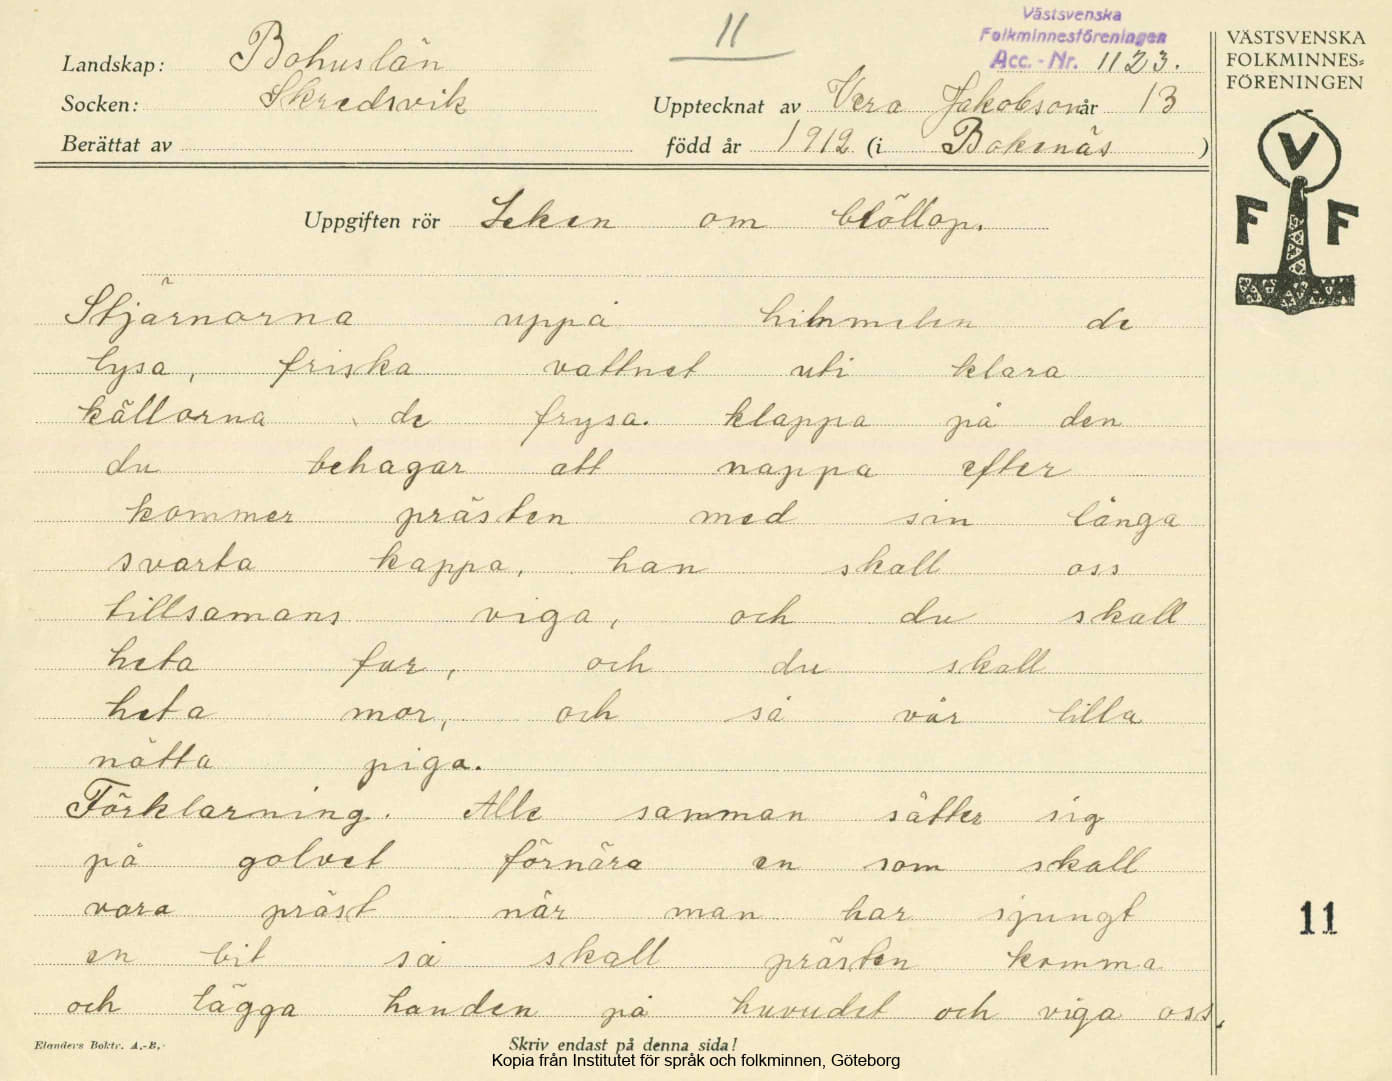 11
Västsvenska
Folkminnesföreningen
Acc. - Nr. 1123.
VÄSTSVENSKA
FOLKMINNES-
FÖRENINGEN
V
F F
Landskap: Bohuslän
Socken: Skredsvik
Upptecknat av Vera Jakobson år 13
Berättat av
född år 1912 (i Bokenäs )
Uppgiften rör Leken om blöllop.
Stjärnorna uppå himmelen de
lysa, friska vattnet uti klara
källorna de frysa. klappa på den
du behagar att nappa efter
kommer prästen med sin långa
svarta kappa, han skall oss
tillsamans viga, och du skall
heta far, och du skall
heta mor, och så vår lilla
nätta piga.
Förklarning. Alle samman sätter sig
på golvet förnära en som skall
vara präst när man har sjungt
en bit så skall prästen komma
och lägga handen på huvudet och viga oss.
11
Elanders Boktr. A.-B.
Skriv endast på denna sida!
Kopia från Institutet för språk och folkminnen, Göteborg